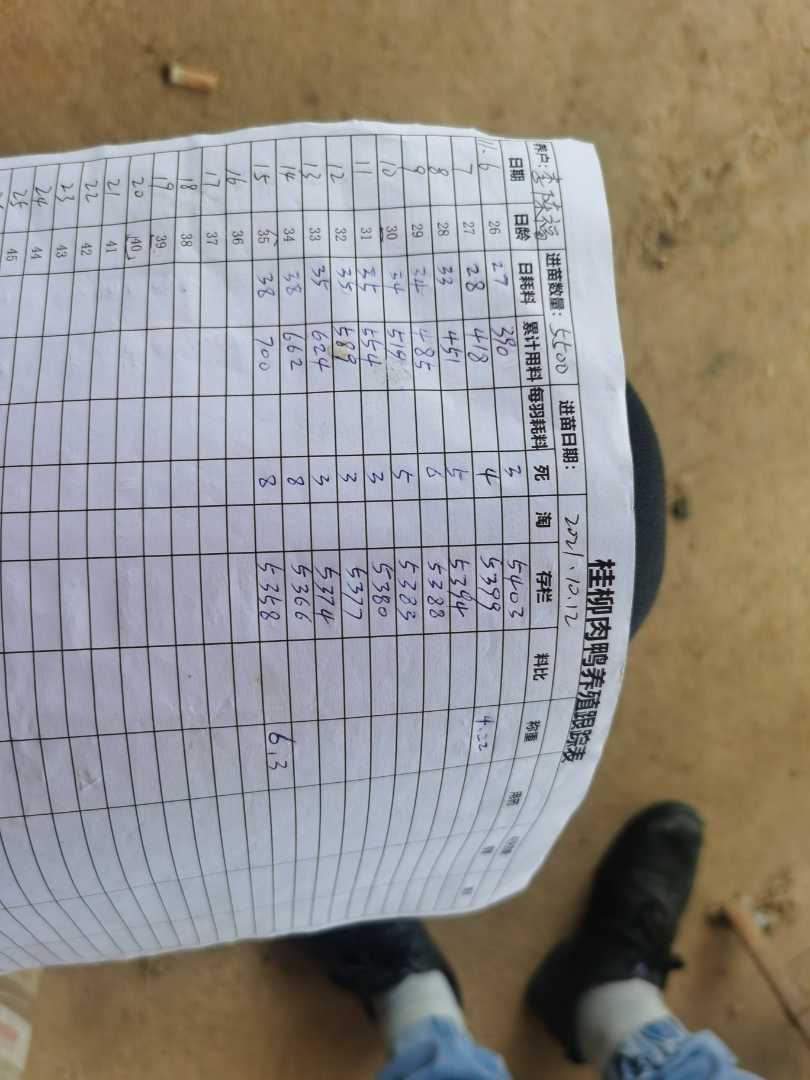 桂柳肉鸭养殖跟踪表
养户: 进苗数量: 5500 进苗日期: 2021.12.12
日期 日龄 日耗料 累计用料 每羽耗料 死 淘 存栏 料比 称重
1.6 26 27 390 3 5403
7 27 28 418 4 5399 4.22
8 28 33 451 5 5394
9 29 34 485 6 5388
10 30 34 519 5 5383
11 31 35 554 3 5380
12 32 35 589 3 5377
13 33 35 624 3 5374
14 34 38 662 8 5366
15 35 38 700 8 5358 6.3
16 36
17 37
18 38
19 39
20 40
21 41
22 42
23 43
24 44
25 45